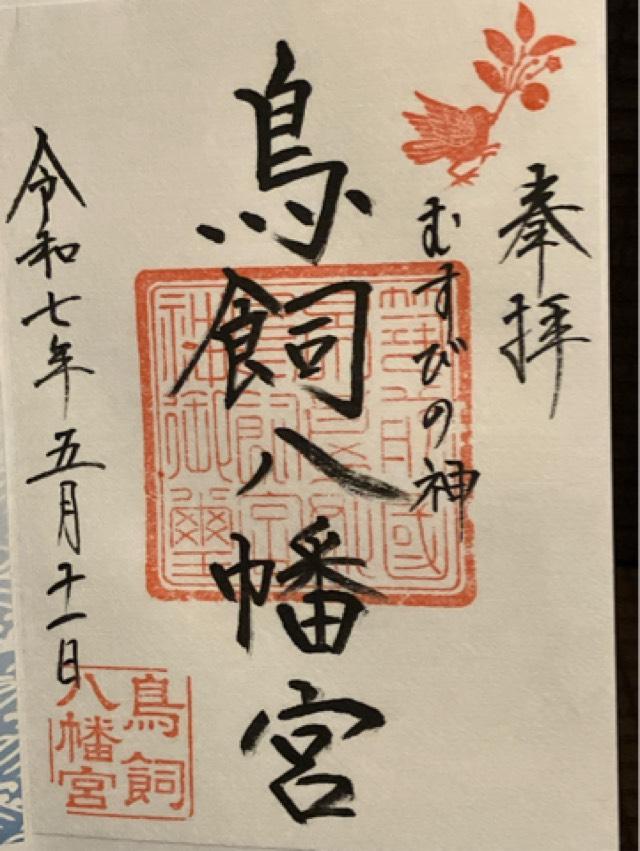 奉拝
むすびの神
鳥飼八幡宮
令和七年五月十一日
鳥飼
八幡宮